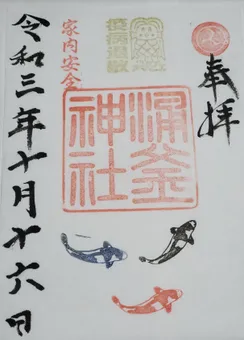 奉拝
涌釜
神社
家内安全
令和三年十月十六日